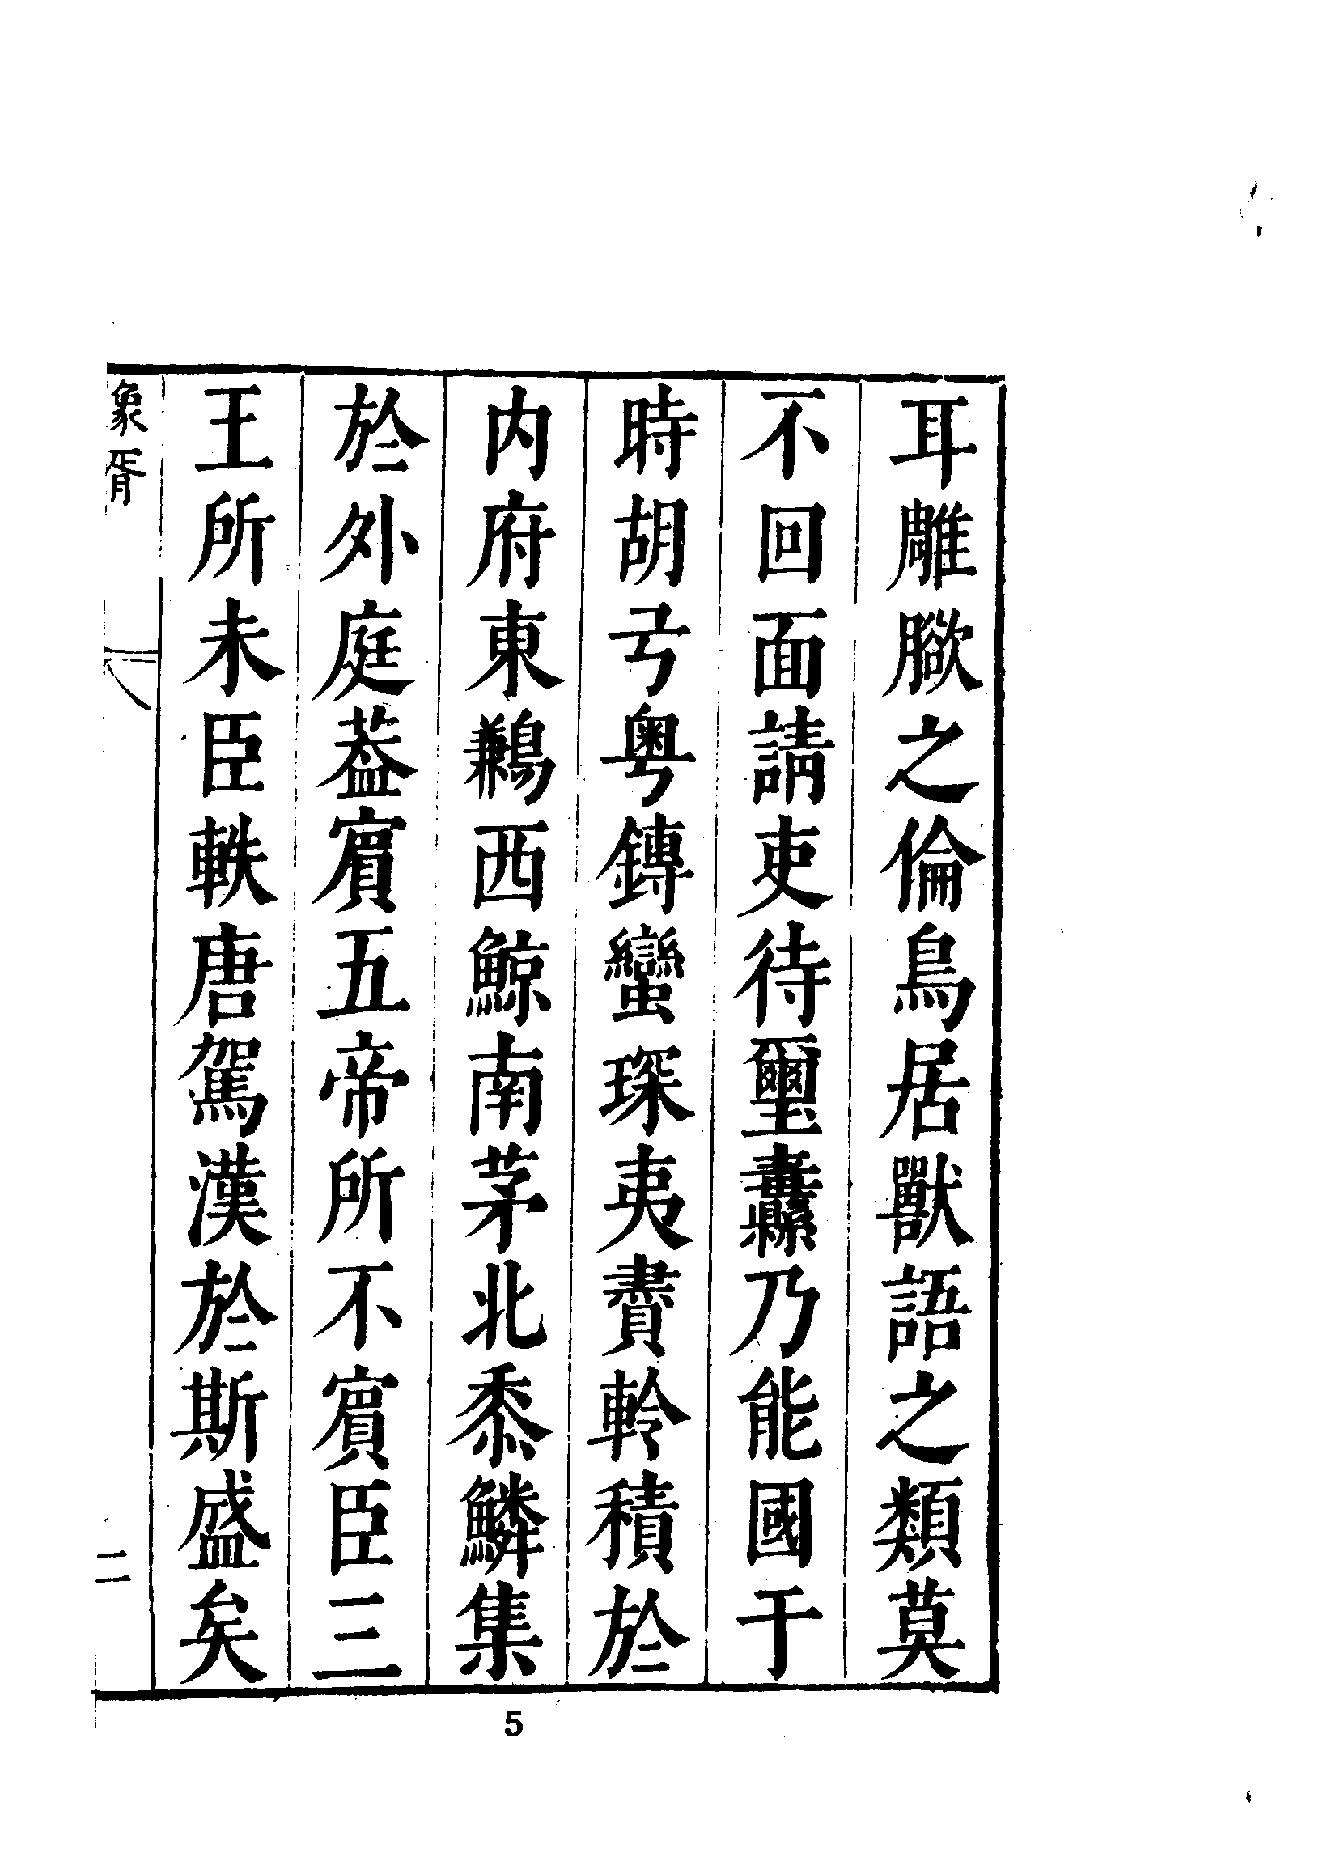 耳雕臗之倫鳥居獸語之類莫
不回面請吏待璽纛乃能國于
時胡弓粤鏄蠻琛夷賮軨積於
内府東鶼西鰈南茅北黍鱗集
於外庭葢賔五帝所不賔臣三
王所未臣軼唐駕漢於斯盛矣
象胥
二
5